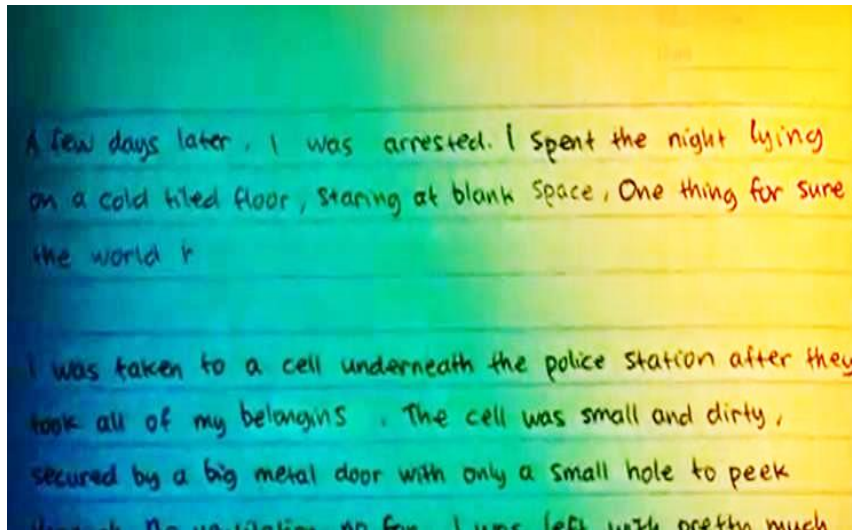 A few days later, I was arrested. I spent the night lying
on a cold tiled floor, staring at blank space, One thing for sure
the world
I was taken to a cell underneath the police station after they
took all of my belongins . The cell was small and dirty,
secured by a big metal door with only a small hole to peek
through. No ventilation no fan. I was left with pretty much